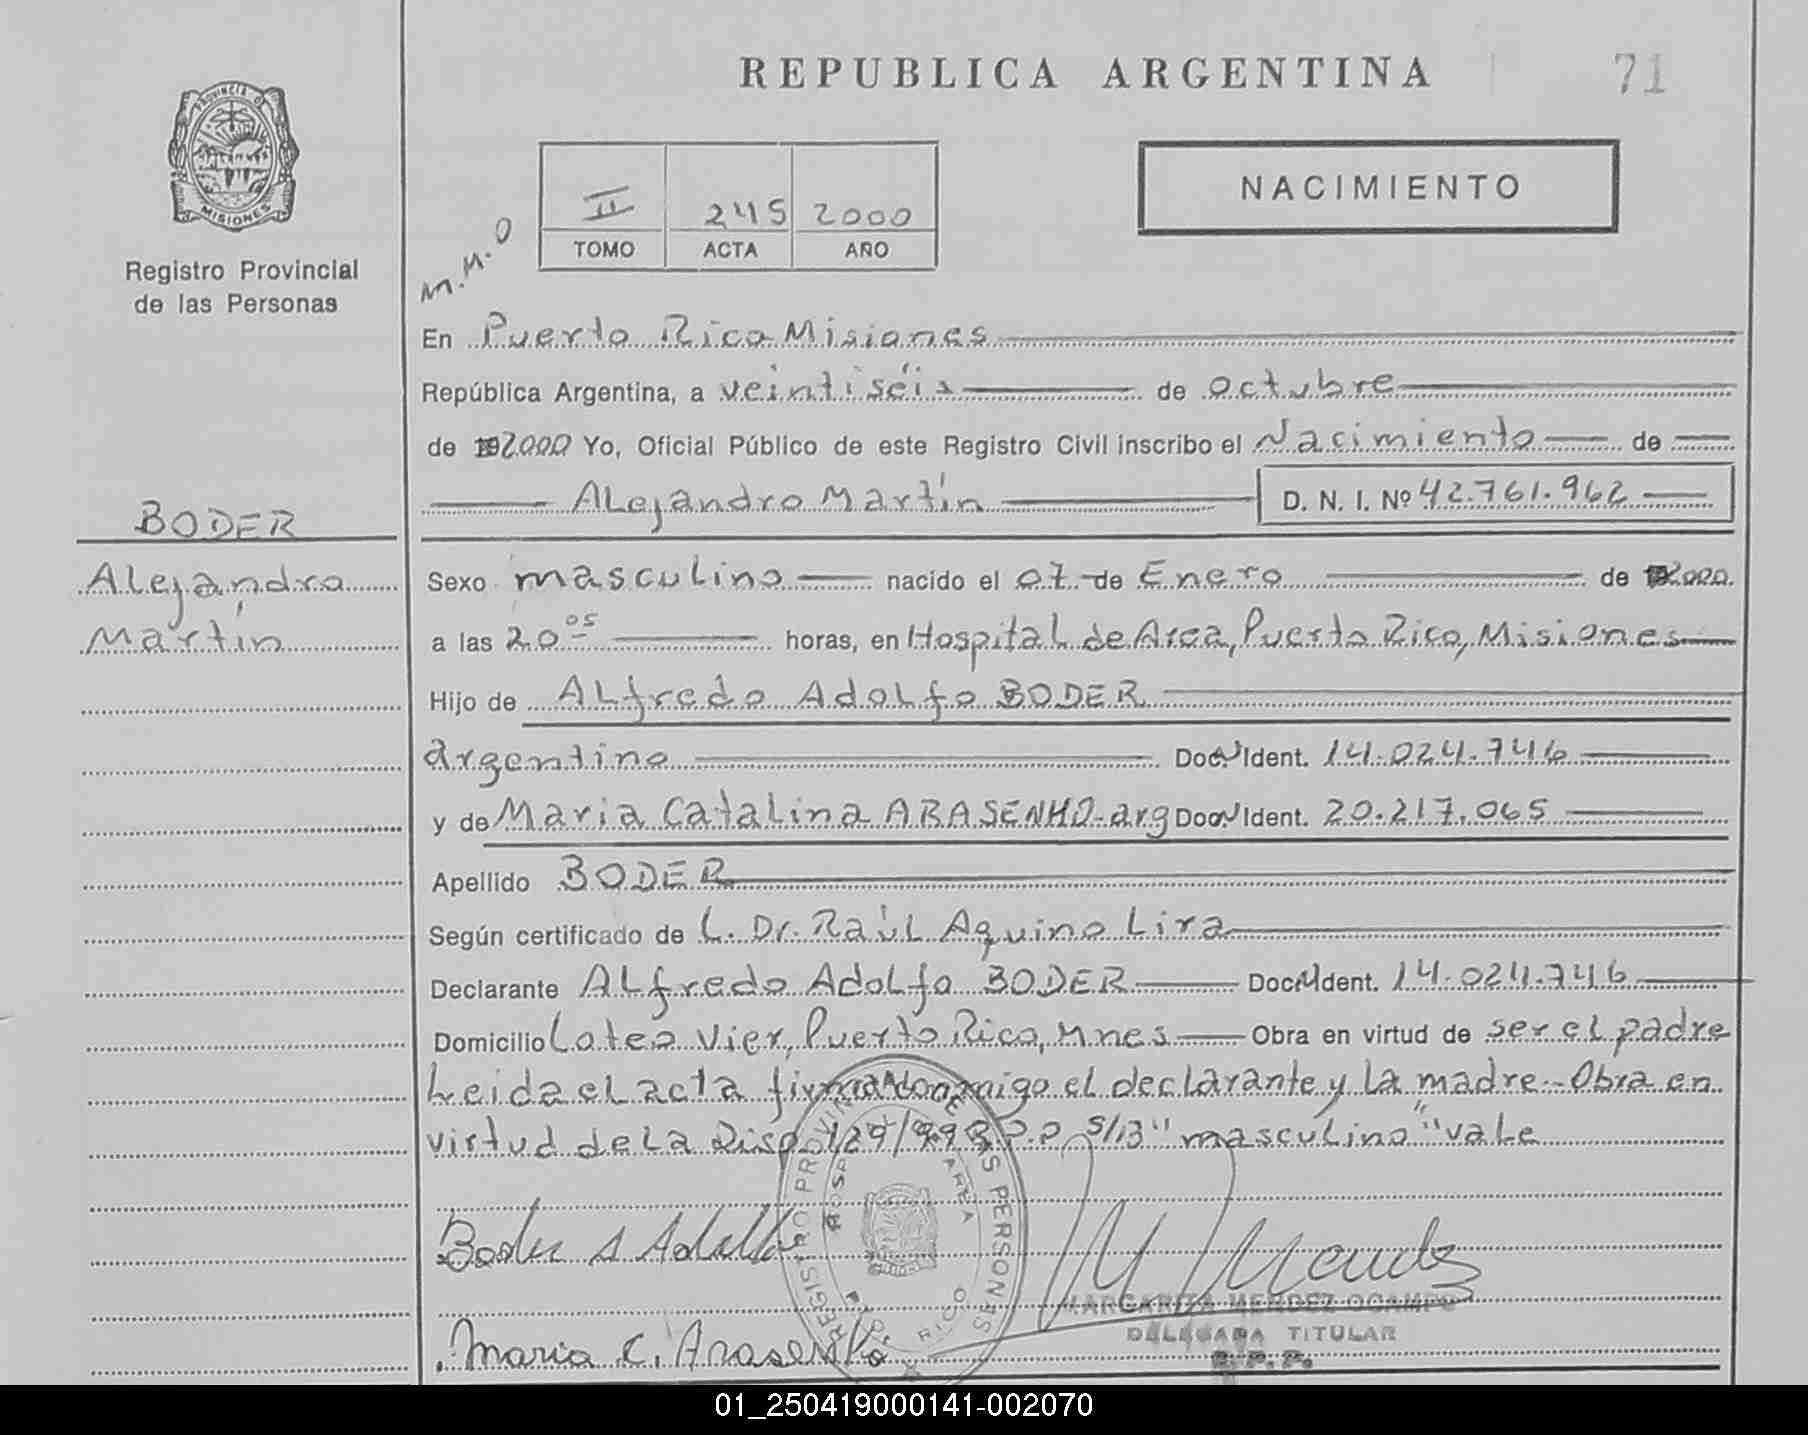 REPUBLICA ARGENTINA
71
PROVINCIA DE
MISIONES
Registro Provincial
de las Personas
II 245 2000
TOMO ACTA AÑO
NACIMIENTO
M.M.O
En Puerto Rico Misiones
República Argentina, a veintiséis de octubre
de 192000 Yo, Oficial Público de este Registro Civil inscribo el Nacimiento de
Alejandro Martín D. N. I. Nº 42.761.962
BODER
Alejandro
Martín
Sexo masculino nacido el 07 de Enero de 2000
a las 20 05 horas, en Hospital de Area, Puerto Rico, Misiones
Hijo de Alfredo Adolfo BODER
argentino Doc. Ident. 14.024.746
y de Maria Catalina ARASENHO-arg Doc. Ident. 20.217.065
Apellido BODER
Según certificado de L. Dr. Raúl Aquino Lira
Declarante Alfredo Adolfo BODER Doc. Ident. 14.024.746
Domicilio Lotea Vier, Puerto Rico, Mnes Obra en virtud de ser el padre
Leida el acta firma conmigo el declarante y la madre.- Obra en
virtud de la Disp. 129/99 R.P.P S/B "masculino" "vale
REGISTRO PROVINCIAL DE LAS PERSONAS
AREA
RICO
Boder A Adolfo
M Mendez
MARGARITA MENDEZ OCAMPO
DELEGADA TITULAR
R. P. P.
Maria C. Arasenho
01_250419000141-002070